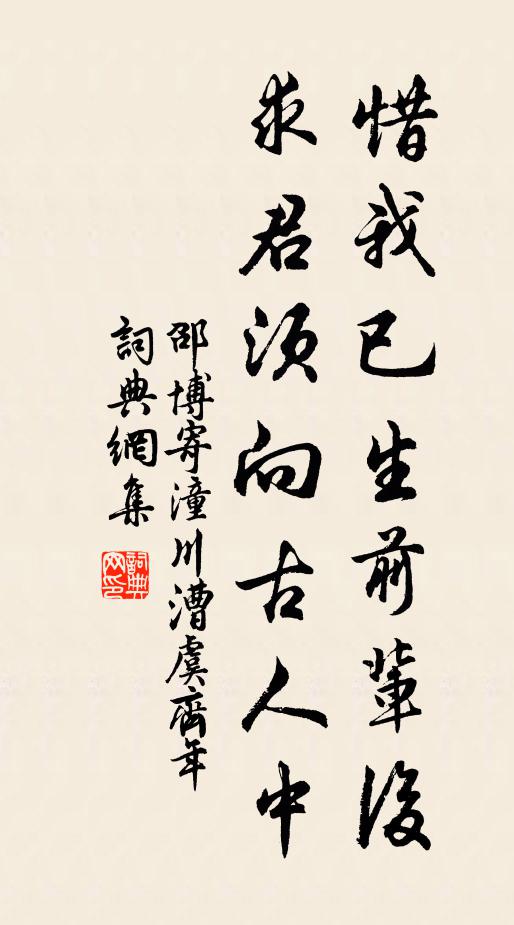 惜我已生前輩後
求君須向古人中
邵博寄潼川漕虞齊年
詞典網集
詞典網印